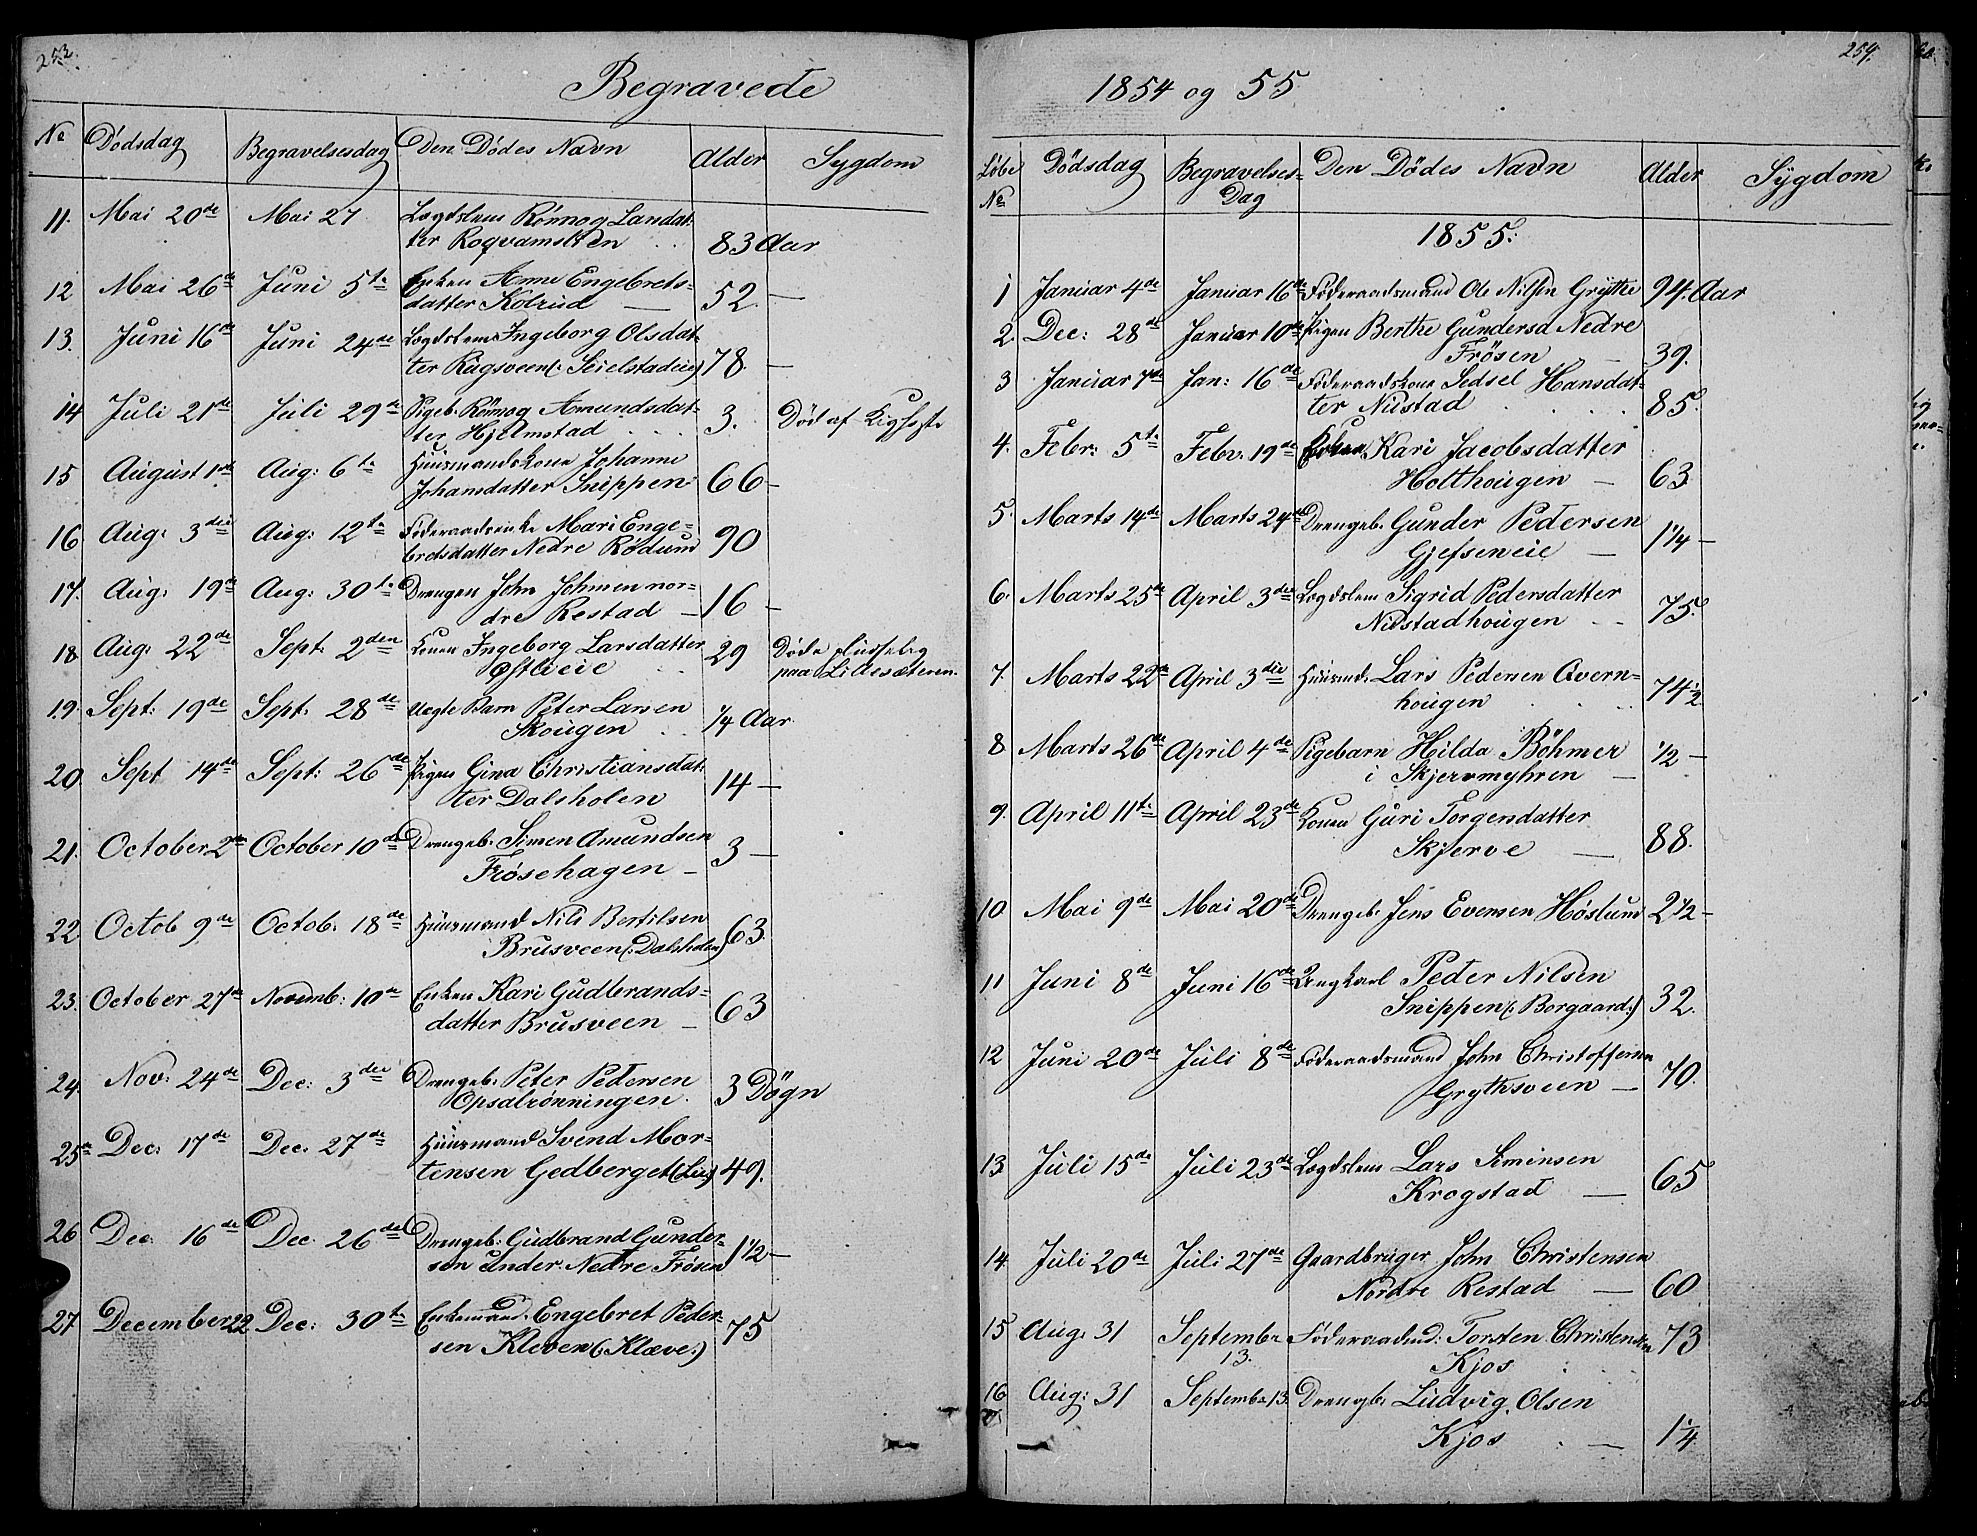 253.
Begravede
No Dødsdag Begravelsesdag Den Dödes Navn Alder Sygdom
11. Mai 20de Mai 27 Lægdslem Rönnog Landat-
ter Roqvamstøen 83 Aar
12 Mai 26de Juni 5te Enken Anne Engebrets-
datter Kolrud — 52. —
13. Juni 16de Juni 24de Lægdslem Ingeborg Olsdat-
ter Ragsveen (: Seielstadeie) 78. —
14 Juli 21de Juli 29de Pigeb. Rönnog Amundsdat-
ter Hjelmstad 3. Död af
15 August 1ste Aug: 6te Huusmandskone Johanne
Johansdatter Snippen 66 -
16 Aug: 3die Aug: 12te Föderaadsenke Mari Enge-
bretsdatter Nedre Rödund 90
17. Aug: 19de Aug: 30te Drengen John Johnsen nor-
dre Restad — 16 -
18 Aug: 22de Sept: 2den Konen Ingeborg Larsdatter
Østlieie 29 Döde pludselig
paa Lillesæteren.
19. Sept: 19de Sept. 28de Uægte Barn Peter Larsen
Skougen 1/4 Aar.
20 Sept 14de Sept: 26de Pigen Gina Christiansdat-
ter Dalsholen 14 —
21. October 2den October 10de Drengeb. Simen Amundsen
Frøsehagen — 3 —
22. Octob 9de Octob. 18de Huusmand Nils Bertilsen
Brusveen (: Dalsholen) 63.
23. October 27de Novemb: 10de Enken Kari Gudbrands-
datter Brusveen — 63
24. Nov. 24de Dec: 3die Drengeb. Peter Pedersen
Opsalrønningen. 3 Dögn
25. Dec: 17de Dec. 27de Huusmand Svend Mor-
tensen Gedberget (Lie) 49.
26 Dec. 16de Dec. 26de Drengeb. Gudbrand Gunder-
sen under Nedre Frösen 1 1/2 —
27 December 22 Dec: 30te Enkemand. Engebret Peder-
sen Kleven (: Klæve:) 75
254.
1854 og 55
Löbe No Dödsdag Begravelses-Dag Den Dödes Navn Alder Sygdom
1855:
1 Januar 4de Januar 16de Föderaadsmand Ole Nilsen Grythe 94. Aar
2. Dec: 28de Januar 10de Pigen Berthe Gundersd Nedre
Frösen — 39.
3 Januar 7de Jan: 16de Föderaadskone Sedsel Hansdat-
ter Nustad 85.
4. Febr: 5te Febr. 19de Enken Kari Jacobsdatter
Holthougen — 63
5. Marts 14de Marts 24de Drengeb. Gunder Pedersen
Gjefseneie — 1 1/4 —
6. Marts 25de April 3die Lægdslem Sigrid Pedersdatter
Nustadhougen 75.
7. Marts 22de April 3die Huusmd. Lars Pedersen Qvern-
hougen 74 1/2
8 Marts 26de April 4de Pigebarn Hilda Böhmer
i Skjervmyhren — 1/2 —
9. April 11te April 23de Konen Guri Torgersdatter
Skjerve — 88.
10. Mai 9de Mai 20de Drengeb. Jens Evensen Høslund 2 1/2 —
11 Juni 8de Juni 16de Ungkarl Peder Nilsen
Snippen (: Borgaard:) 32.
12 Juni 20de Juli 8de Föderaadsmand John Christoffersen
Grythsveen — 70.
13. Juli 15de Juli 23de Lægdslem Lars Simensen
Krogstad — 65
14. Juli 20de Juli 27de Gaardbruger John Christensen
Nordre Restad — 60
15 Aug: 31 September 13. Föderaadsmd: Torsten Christensen 73
Kjos
16 Aug: 31 September 13. Drengb. Ludvig Olsen
Kjos — 1 1/4